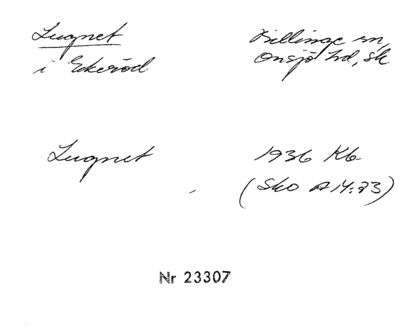 Lugnet Billinge sn,
i Ekeröd Onsjö hd, sk
Lugnet 1936 Kb
(Sko A14:23)
Nr 23307